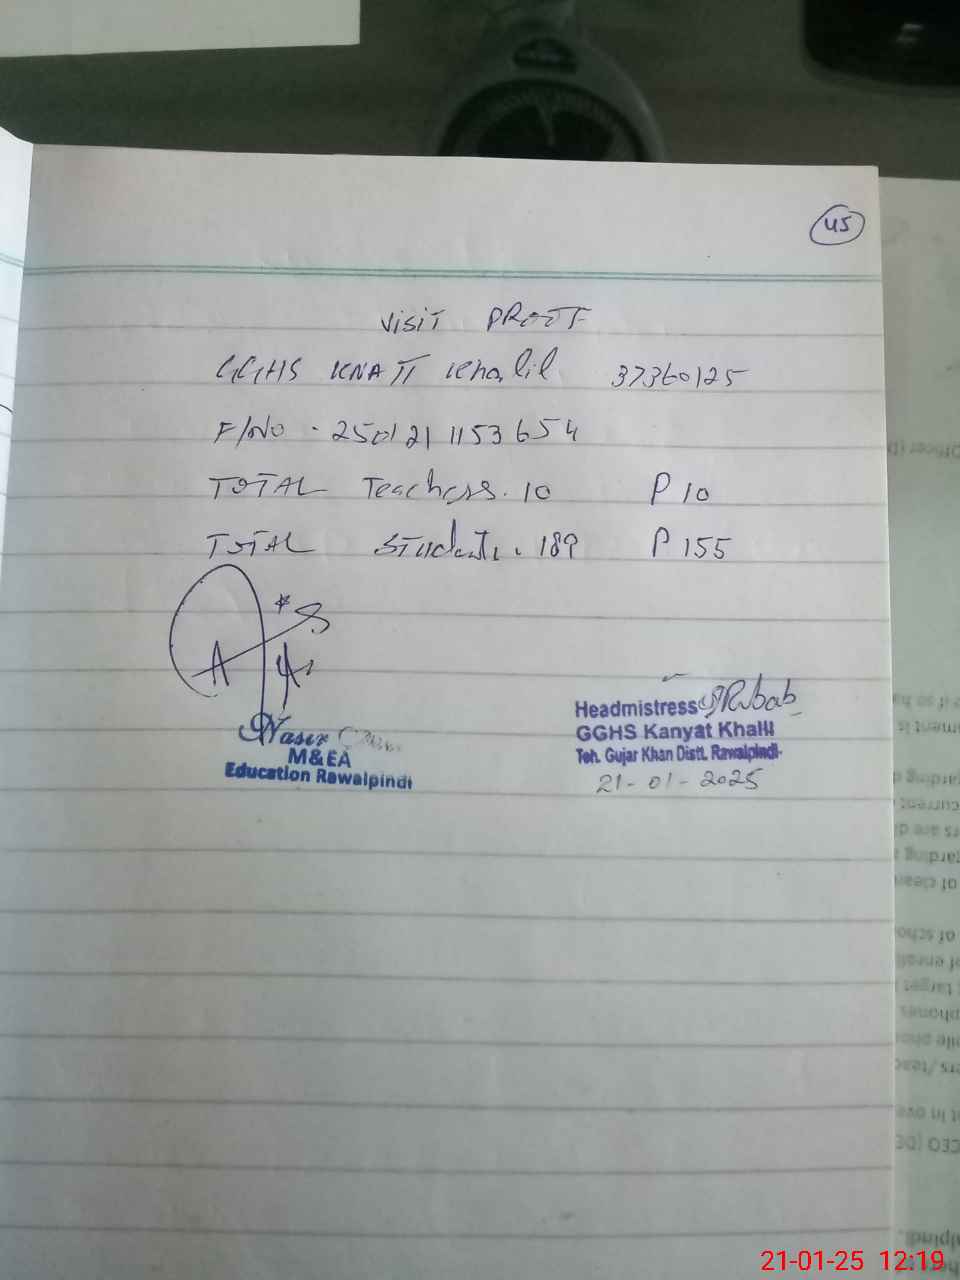 45
VISIT PROOF
GGHS KNATT Khalil 37360125
F/NO . 250121 1153654
TOTAL Teachers. 10 P 10
TOTAL Students. 189 P 155
Nasir
M&EA
Education Rawalpindi
Headmistress Rubab
GGHS Kanyat Khalil
Teh. Gujar Khan Distt. Rawalpindi
21-01-2025
21-01-25 12:19